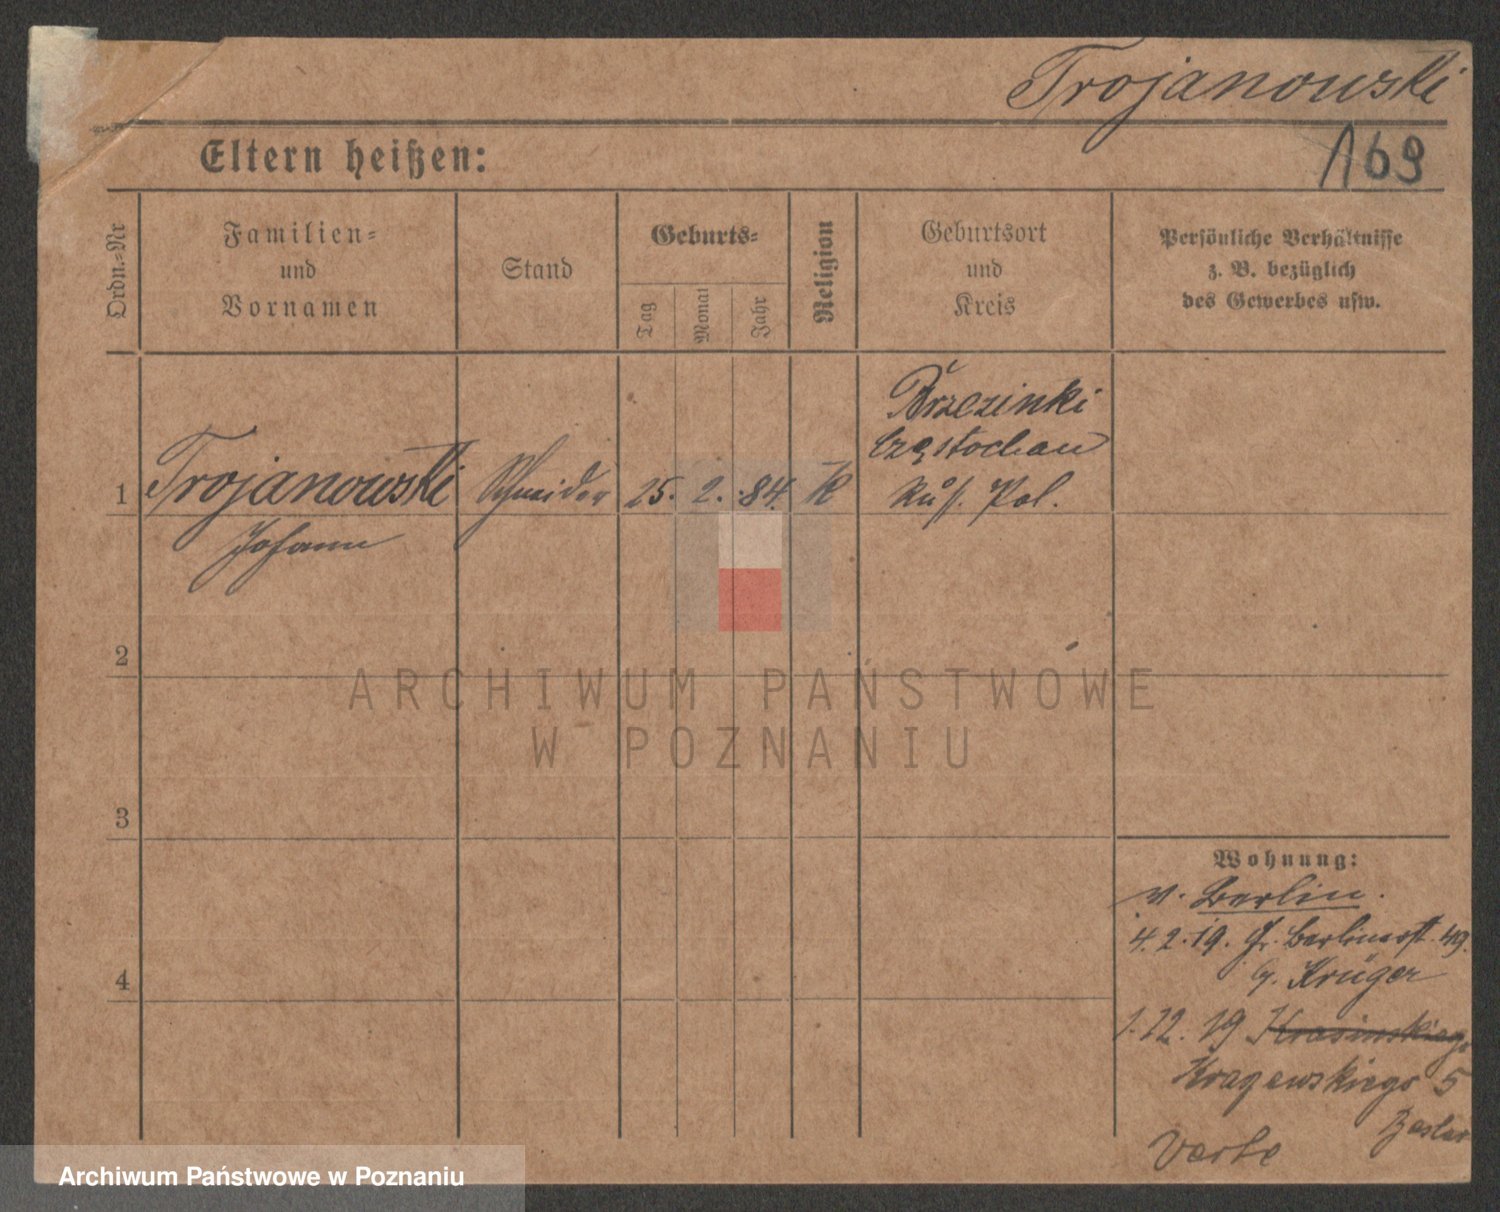 Trojanowski
169
Eltern heißen:
Ordn.-Nr
Familien-
und
Vornamen
Stand
Geburts-
Tag
Monat
Jahr
Religion
Geburtsort
und
Kreis
Persönliche Verhältnisse
z. B. bezüglich
des Gewerbes usw.
1
Trojanowski
Johann
Schneider
25. 2. 84.
K
Brzezinki
Częstochau
Ruß. Pol.
2
3
4
Wohnung:
v. Berlin.
4. 2. 19. Gr. Berlinerst. 49.
b. Krüger
1. 12. 19 Krasinskiego
5
Verte
ARCHIWUM PAŃSTWOWE
W POZNANIU
Archiwum Państwowe w Poznaniu